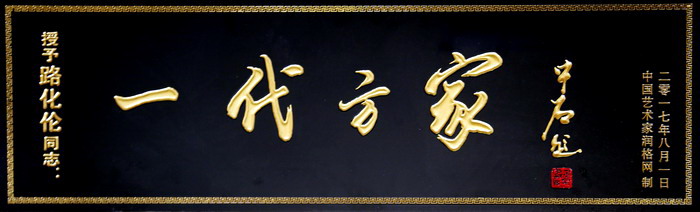 授予路化伦同志：
一代方家
二零一七年八月一日
中国艺术家润格网 制